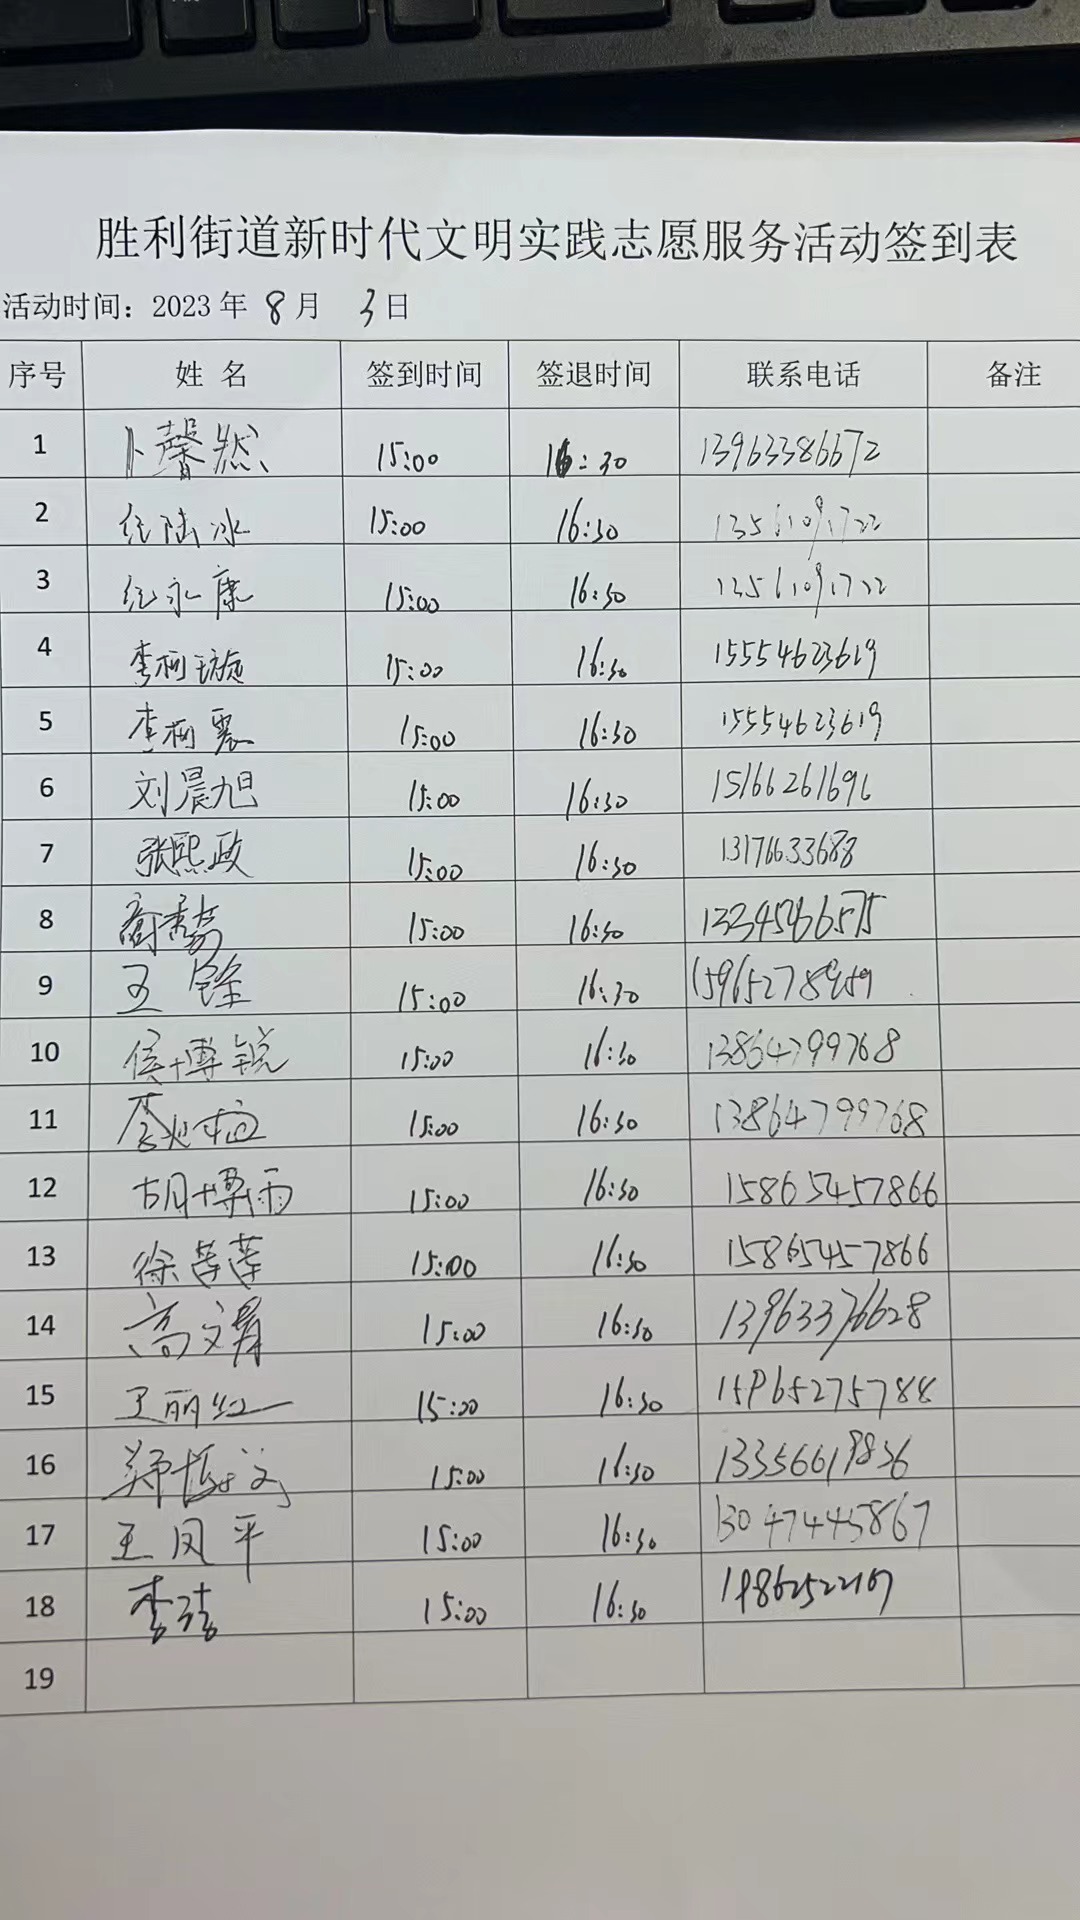 胜利街道新时代文明实践志愿服务活动签到表
活动时间：2023年 8月 3日
序号 姓 名 签到时间 签退时间 联系电话 备注
1 卜馨然 15:00 16:30 13963386672
2 纪陆冰 15:00 16:30 13561091722
3 纪永康 15:00 16:30 13561091722
4 李柯璇 15:00 16:30 15554623619
5 李柯震 15:00 16:30 15554623619
6 刘晨旭 15:00 16:30 15166261696
7 张熙政 15:00 16:30 13176633688
8 15:00 16:30
9 王锋 15:00 16:30
10 侯博锐 15:00 16:30 13864799768
11 15:00 16:30 13864799768
12 胡博雨 15:00 16:30 15865457866
13 徐莲莲 15:00 16:30 15865457866
14 高文 15:00 16:30 13963376628
15 王丽红 15:00 16:30 15965275788
16 郑博文 15:00 16:30 13356619836
17 王凤平 15:00 16:30 13047445867
18 李 15:00 16:30
19